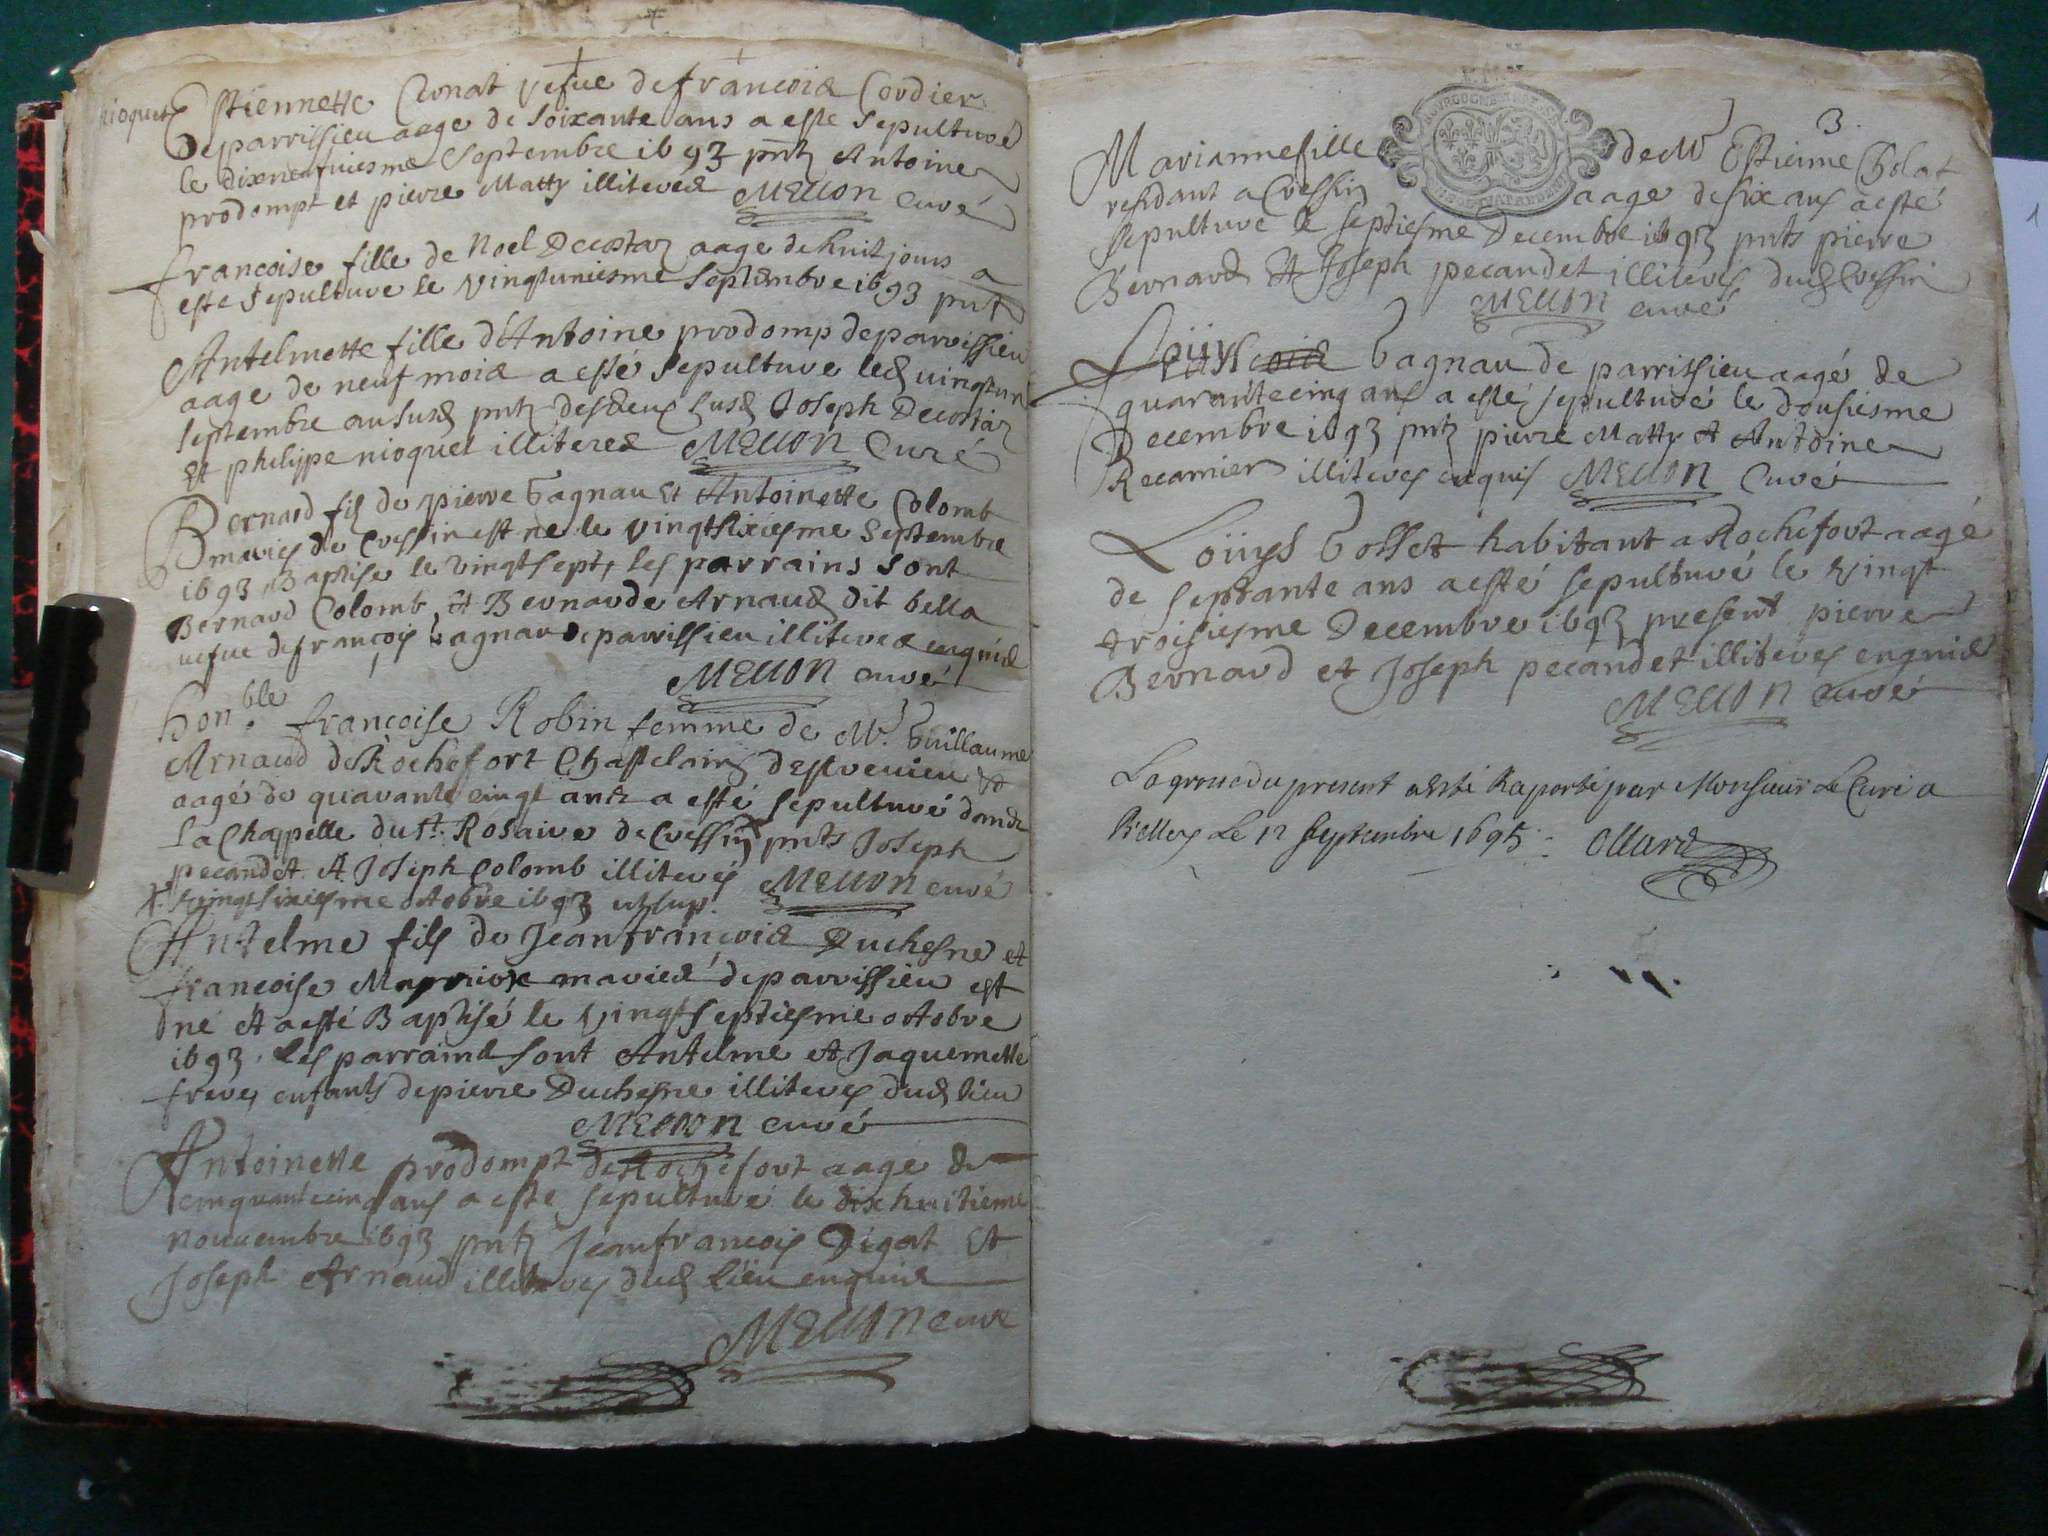 nioquet
Estiennette Conat vefue de francois Cordier
de parrissieu aage de soixante ans a este sepulturé
le dixneufuiesme Septembre 1693 pntz Antoine
prodompt et pierre Matty illiteres MELLON Curé
francoise fille de Noel Decostaz aage de huit jours a
este sepulture le vingtuniesme Septembre 1693 pnts
Antelmette fille d'Antoine prodomp de parrissieu
aage de neuf mois a esté sepulture led vingtun
septembre au susd pntz desdeux susd Joseph Decostaz
Et philippe nioquet illiteres MELLON Curé
Bernard filz de pierre Gagnau Et Antoinette Colomb
maries de Cressin est ne le vingtsixiesme Septembre
1693 Baptise le vingtsept, les parrains sont
Bernard Colomb Et Bernarde Arnaud dit bella
vefue de françois Gagnau de parrissieu illiteres enquis
MELLON curé
hon.ble francoise Robin femme de Mr. Guillaume
Arnaud de Rochefort Chastelain
aagé de quarante cinqt ants a esté sepulturé dans
La Chappelle du st. Rosaire de Cressin pnts Joseph
pecandet Et Joseph Colomb illiteres MELLON curé
+ vingtsixiesme octobre 1693 ut sup.
Antelme fils de Jeanfrançois Duchesne et
francoise mariés de parrissieu est
né et a esté Baptisé le vingtseptiesme octobre
1693. Les parrains sont Antelme et Jaquemette
frere, enfants de pierre Duchesne illiteres dud lieu
MELLON curé
Antoinette prodompt de Rochefort aage de
cinquantecinq ans a este sepulturé le dixhuitieme
nouuembre 1693 pntz Jeanfrancois Digat Et
Joseph Arnaud illiteres dud Lieu enquis
MELLON curé
3
Marianne fille de Mr Estienne Cholat
residant a Cressin aage de six ans a esté
sepulture le septiesme Decembre 1693 pnts pierre
Bernard Et Joseph pecandet illiteres dud Cressin
MELLON curé
Loüys Gagnau de parrissieu aagé de
quarantecinq ans a esté sepulturé le dousiesme
Decembre 1693 pntz pierre Matty et Antoine
Recamier illiteres enquis MELLON Curé
Loüys Gosset habitant a Rochefort aagé
de septante ans a esté sepulturé le vingt
troisiesme Decembre 1693 present pierre
Bernard et Joseph pecandet illiteres enquis
MELLON curé
La grosse du present a esté Raporté par Monsieur Le Curé a
Belley Le 12 Septembre 1695 ollard